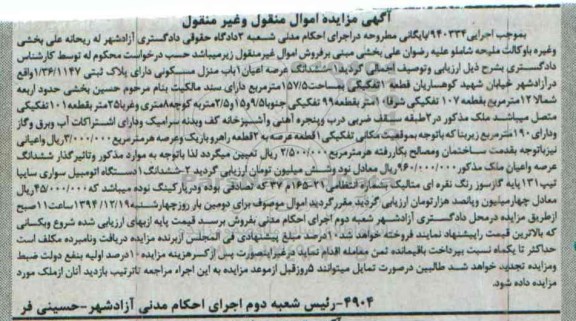 آگهی مزایده اموال منقول وغیر منقول
بموجب اجرایی۹۴۰۳۳۴/بایگانی مطروحه دراجرای احکام مدنی شعبه ۲دادگاه حقوقی دادگستری آزادشهر له ریحانه علی بخشی
وغیره باوکالت ملیحه شاملو علیه رضوان علی بخشی مبنی برفروش اموال غیرمنقول زیرمیباشد حسب درخواست محکوم له توسط کارشناس
دادگستری بشرح ذیل ارزیابی وتوصیف اجمالی گردید۱-ششدانگ عرصه اعیان ۱باب منزل مسکونی دارای پلاک ثبتی ۱/۳۶/۱۱۴۷واقع
درآزادشهر خیابان شهید کوهساریان قطعه ۱تفکیکی بمساحت۱۵۷/۵مترمربع دارای سند مالکیت بنام مرحوم حسین بخشی حدود اربعه
شمالا ۱۲مترمربع بقطعه ۱۰۷ تفکیکی شرقا۱۰متر بقطعه۹۹ تفکیکی جنوبا۹/۵و۱۵و۲/۵متربه کوچه۸متری وغربا۲۵متر بقطعه۱۰۱تفکیکی
متصل میباشد ملک مذکور در۲طبقه باسقف ضربی درب وپنجره آهنی وآشپزخانه کف وبدنه سرامیک ودارای اشتراکات آب وبرق وگاز
ودارای ۱۹۰مترمربع زیربنا که باتوجه بموقعیت مکانی تفکیکی ۱قطعه عرصه به ۲قطعه راهرو باریک وعرصه هرمترمربع ۳/۰۰۰/۰۰۰ریال واعیانی
نیزباتوجه بقدمت ساختمان ومصالح بکاررفته هرمترمربع۲/۵۰۰/۰۰۰ ریال تعیین میگردد لذا باتوجه به موارد مذکور وتاثیرگذار ششدانگ
عرصه واعیان ملک مذکور۹۶۰/۰۰۰/۰۰۰ریال معادل نود وشش میلیون تومان ارزیابی گردید ۲-ششدانگ ۱دستگاه اتومبیل سواری سایپا
تیپ۱۳۱ پایه گازسوز رنگ نقره ای متالیک بشماره انتظامی۲۱-۱۶۵م ۳۷ که تصادفی بوده ودرپارکینگ توده میباشد که۴۵/۰۰۰/۰۰۰ریال
معادل چهارمیلیون وپانصد هزارتومان ارزیابی گردید مقررگردید اموال موصوف برای دومین بار روزچهارشنبه۱۳۹۴/۱۲/۱۹ساعت۱۱صبح
ازطریق مزایده درمحل دادگستری آزادشهر شعبه دوم اجرای احکام مدنی بفروش برسد قیمت پایه ازبهای ارزیابی شده شروع وبکسانی
که بالاترین قیمت راپیشنهاد نمایند فروخته خواهد شد ۱۰درصد مبلغ پیشنهادی فی المجلس ازبرنده مزایده دریافت ونامبرده مکلف است
حداکثر تا یکماه نسبت بپرداخت باقیمانده ثمن معامله اقدام نماید درغیراینصورت پس ازکسرهزینه مزایده ۱۰درصد اولیه بنفع دولت ضبط
ومزایده تجدید خواهد شد طالبین درصورت تمایل میتوانند ۵روزقبل ازموعد مزایده به این اجراء مراجعه تاترتیب بازدید آنان ازملک مورد
مزایده داده شود.
۴۹۰۴-رئیس شعبه دوم اجرای احکام مدنی آزادشهر-حسینی فر